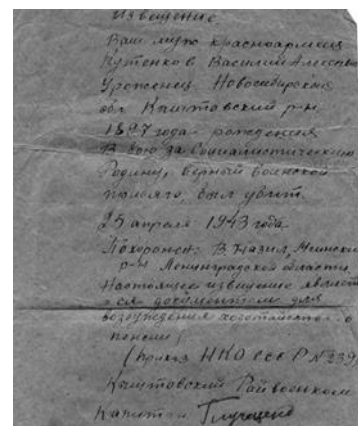 Извещение
Ваш муж красноармеец
Кутенков Василий Алексеев
Уроженец Новосибирской
обл Кыштовский р-н
1897 года рождения
В бою за Социалистическую
Родину, верный воинской
присяге, был убит
25 апреля 1943 года.
Похоронен: Мгинский
р-н Ленинградской области
Настоящее извещение являет
ся документом для
возбуждения ходатайства о
пенсии
(приказ НКО СССР № 239)
Кыштовский Райвоенком
Капитан